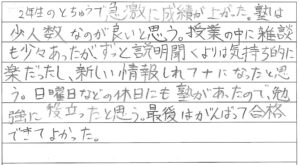 2年生のとちゅうで急激に成績が上がった。塾は
少人数なのが良いと思う。授業の中に雑談
も少々あったがずっと説明聞くよりは気持ち的に
楽だったし、新しい情報しれてナになったと思
う。日曜日などの休日にも塾があたので、勉
強に役立ったと思う。最後はがんばって合格
できてよかった。